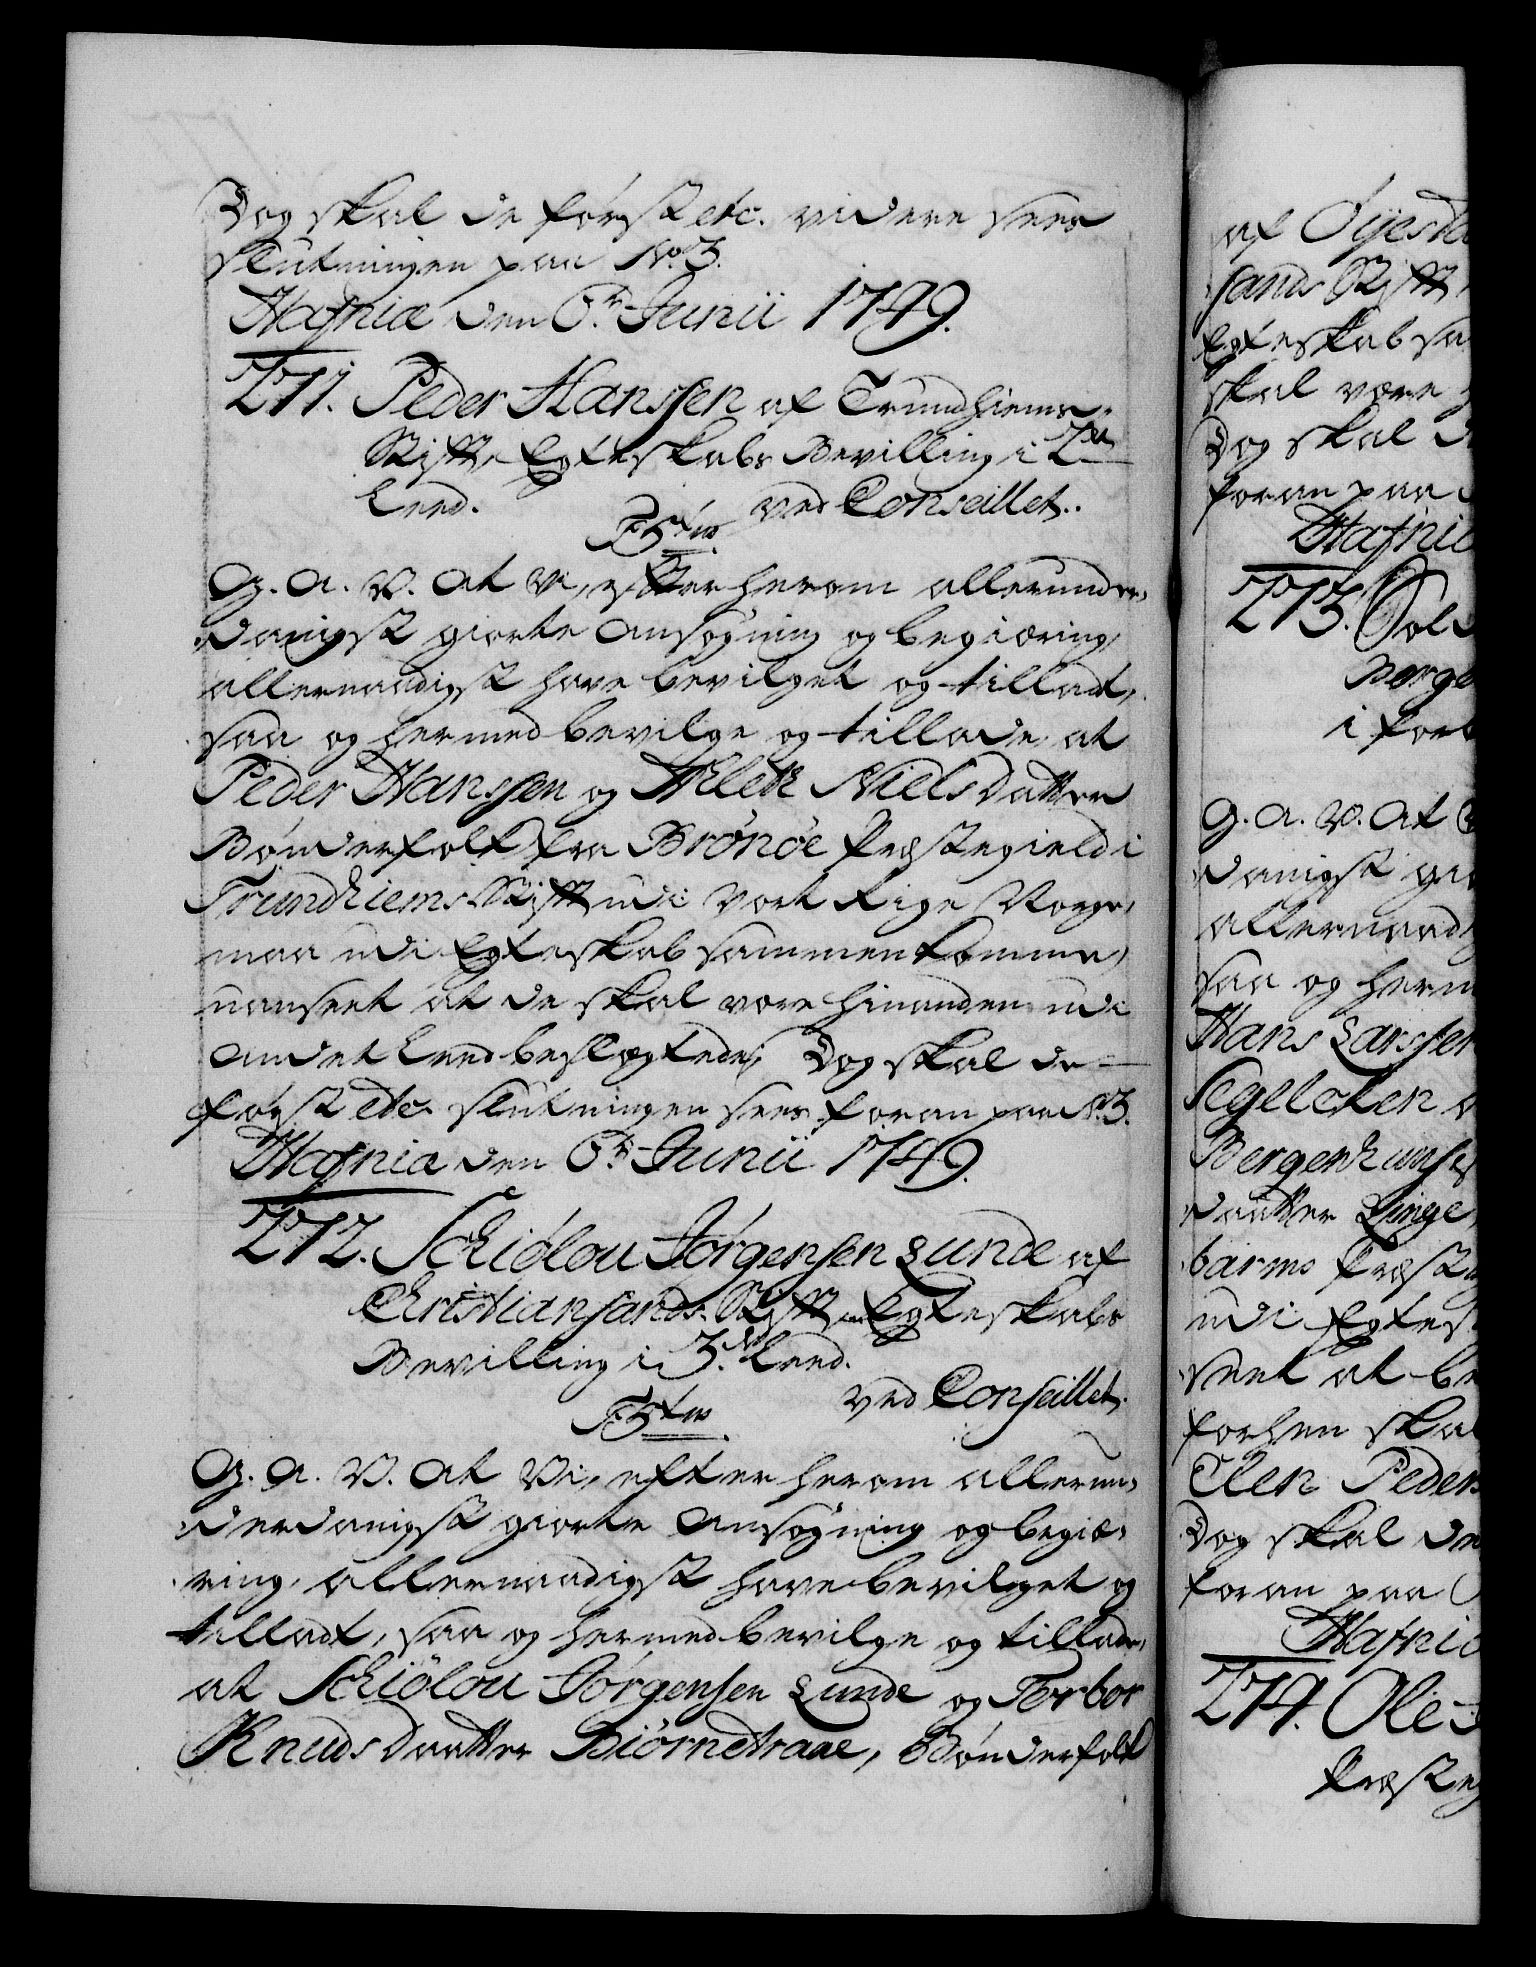 Dog skal de først etc. videre sees
slutningen paa No. 3.
Hafniæ den 6te Junii 1749.
271. Peder Hanssen af Trundhiems
Stift, Egteskabs Bevilling i 2det
Leed. ved Conseillet.
F 5tus
G. A. V. At Vi, efter herom allerunder-
danigst giorte Ansøgning og begiæring,
allernaadigst have bevilget og tilladt,
saa og hermed bevilge og tillade, at
Peder Hanssen og Aleth Nielsdatter
Bønderfolk fra Brønöe Præstegield i
Trundhiems Stift udi Vort Rige Norge,
maa udi Egteskab sammenkomme,
uanseet at de skal være hinanden udi
andet Leed beslægtede, Dog skal de
først etc. slutningen sees foran paa No. 3.
Hafniæ den 6te Junii 1749.
272. Schiölou Jørgensen Lunde af
Christiansands Stift Egteskabs
Bevilling i 3die Leed.
ved Conseillet.
F 5tus
G. A. V. At Vi, efter herom allerun-
derdanigst giorte Ansøgning og begiæ-
ring, allernaadigst have bevilget og
tilladt, saa og hermed bevilge og tillade,
at Schiölou Jørgensen Lunde og Torbor
Knudsdaatter Biörnetraae, Bønderfolk
af Øyesta
sands Stift,
Egteskab sa
skal være
Dog skal d
foran paa
Hafniæ
273. Sol
Berge
i for
G. A. V. At V
danigst gi
allernaad
saa og herm
Hans Larssen
Segelcken
Bergenhuuses
daatter Linge
barms Præst
udi Egtes
seet at
forhen skal
Elen Peders
Dog skal de
foran paa
Hafniæ
274. Ole
Præsteg